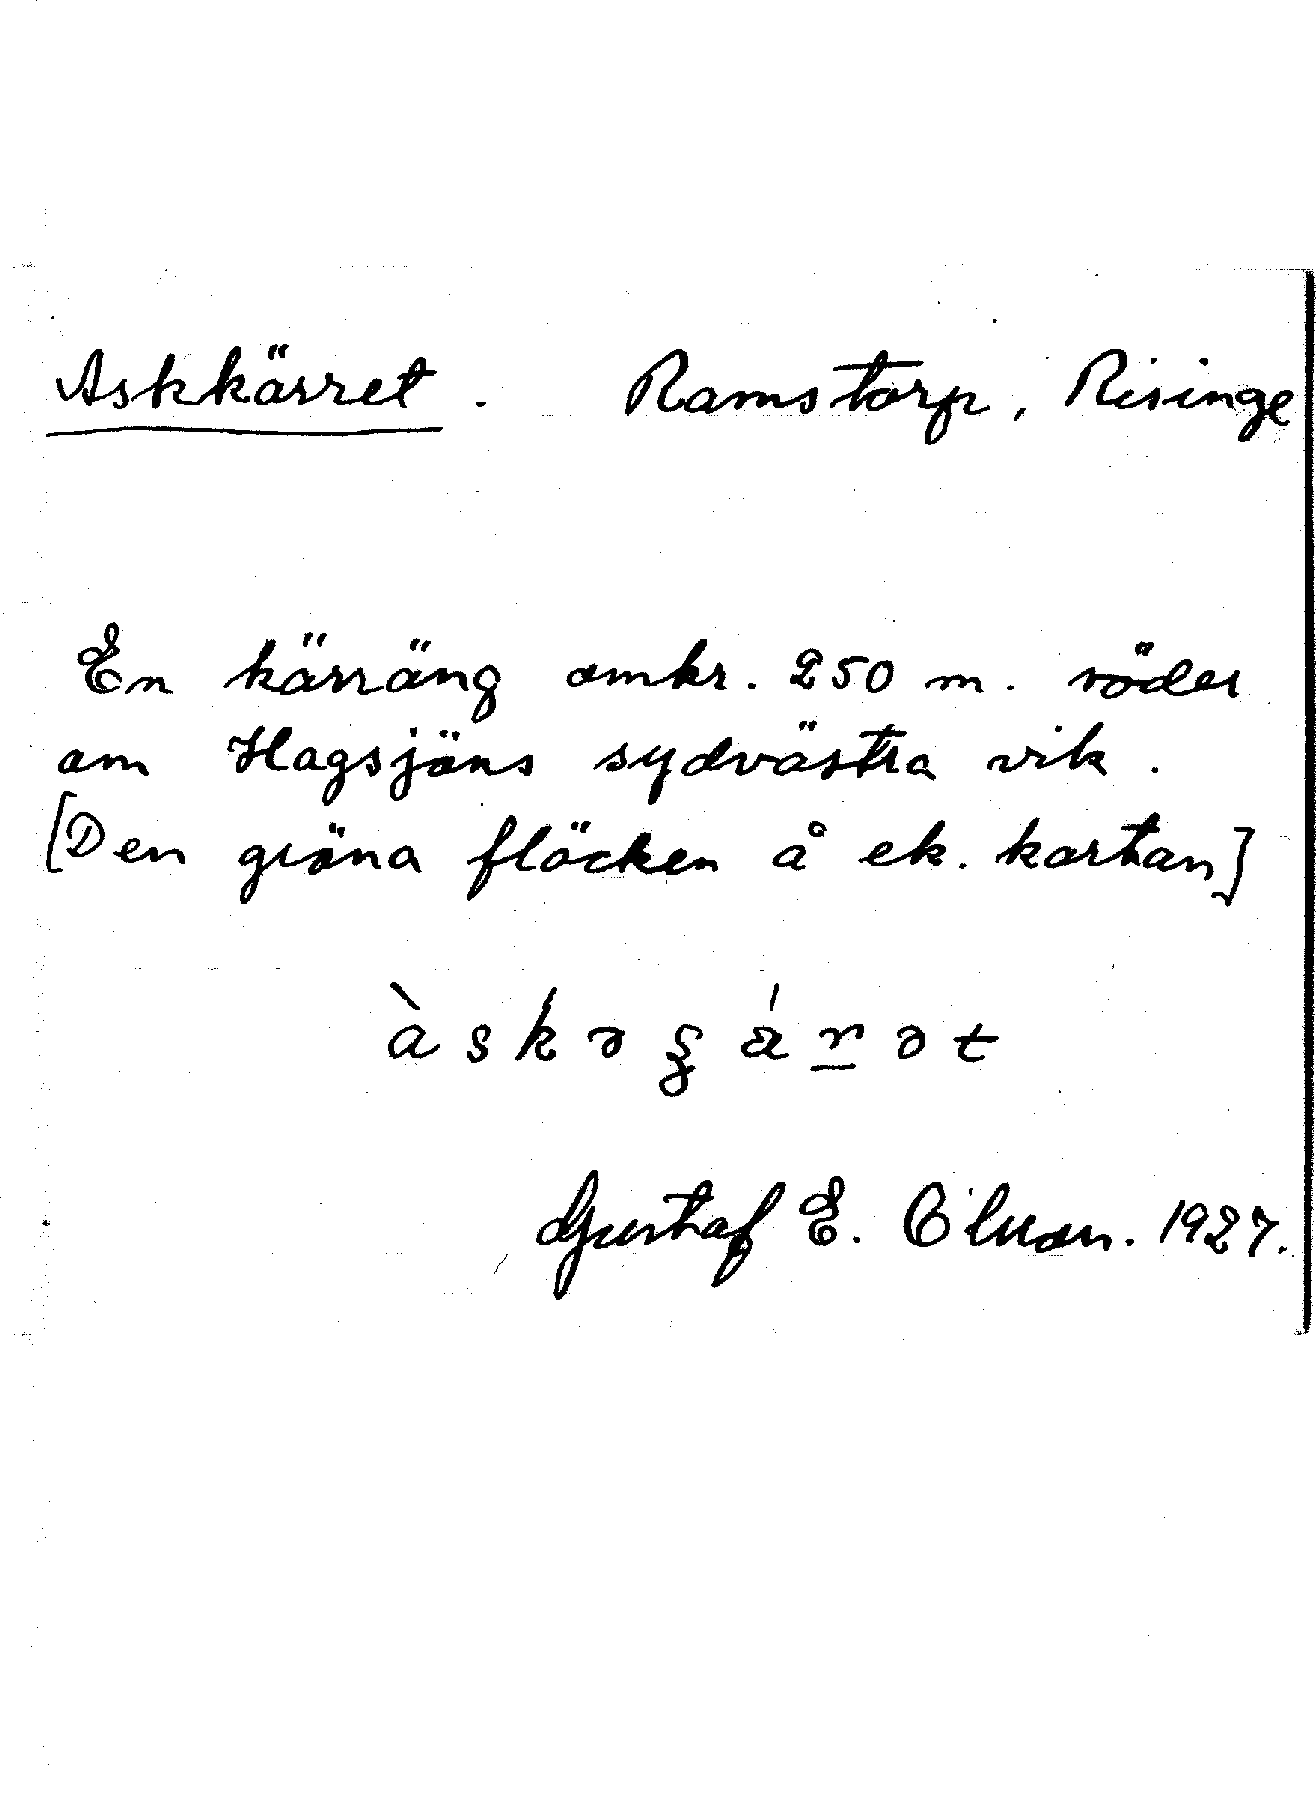 Askkärret. Ramstorp, Risinge
En kärräng omkr. 250 m. söder
om Hagsjöns sydvästra vik.
[Den gröna fläcken å ek. kartan]
Gustaf E. 1927.